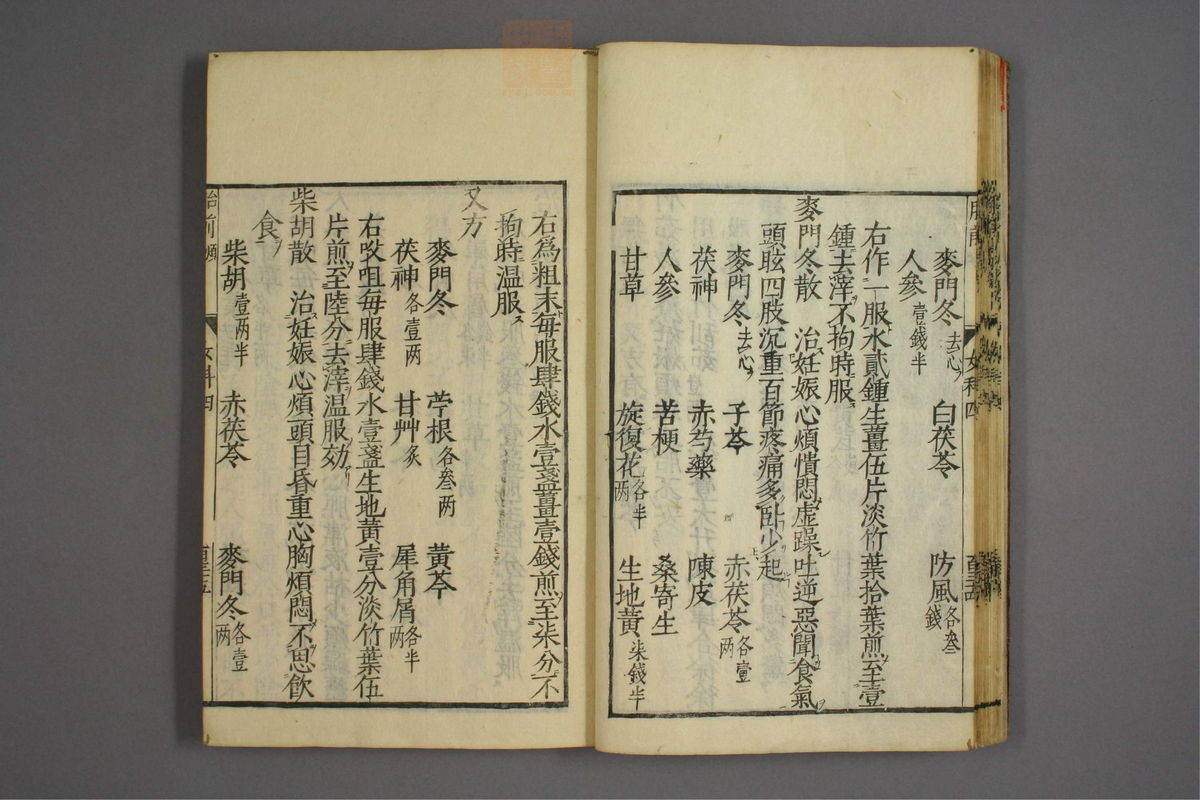 麥門冬去心 白茯苓 防風各叁錢
人參壹錢半
右作一服水貳鍾生薑伍片淡竹葉拾葉煎至壹
鍾去滓不拘時服
麥門冬散 治妊娠心煩憒悶虛躁吐逆惡聞食氣
頭眩四肢沉重百節疼痛多臥少起
麥門冬去心 子芩 赤茯苓各壹兩
茯神 赤芍藥 陳皮
人參 苦梗 桑寄生
甘草 旋復花各半兩 生地黃柒錢半
右爲粗末每服肆錢水壹盞薑壹錢煎至柒分不
拘時温服
又方
麥門冬 苧根各叁兩 黃芩
茯神各壹兩 甘艸炙 犀角屑各半兩
右㕮咀每服肆錢水壹盞生地黃壹分淡竹葉伍
片煎至陸分去滓温服効
柴胡散 治妊娠心煩頭目昏重心胸煩悶不思飲
食
柴胡壹兩半 赤茯苓 麥門冬各壹兩
胎前 女科四